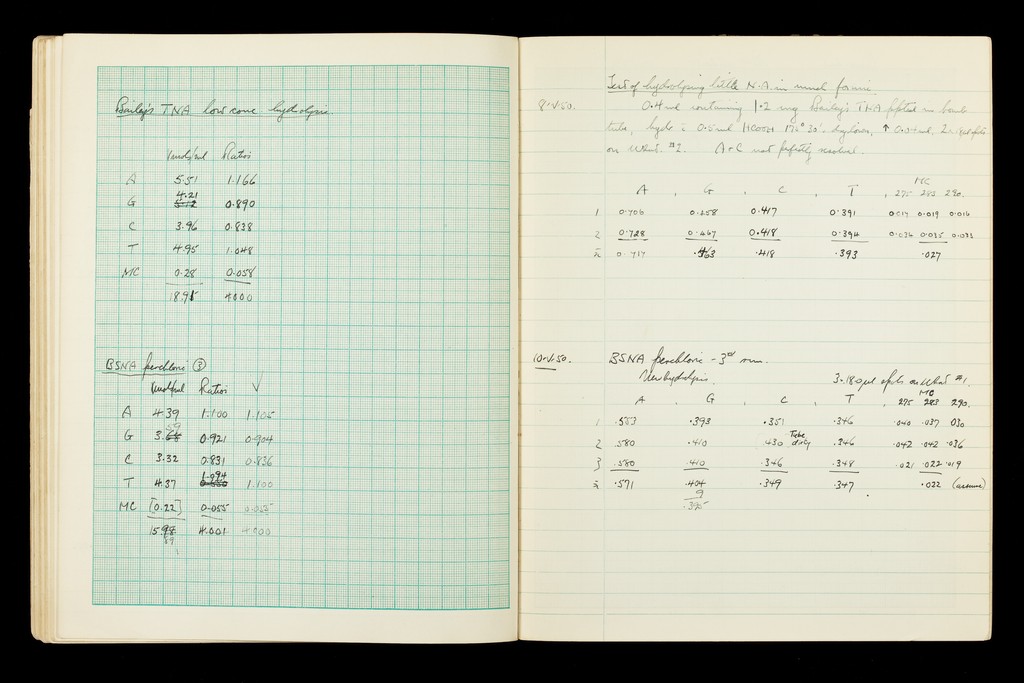 Bailey's TNA low conc hydrolysis
Ratios
A 5.51 1.166
G 4.21 0.890
C 3.96 0.838
T 4.95 1.048
MC 0.28 0.058
18.91 4.000
BSNA perchloric ③
Ratios V
A 4.39 1.100 1.105
G 3.59 0.921 0.904
C 3.32 0.831 0.836
T 4.37 1.094 1.100
MC [0.22] 0.055 0.055
15.98 4.001 4.000
89
Test of hydrolysing little N.A. in usual
8.V.50. 0.4 ml containing 1.2 mg Bailey's TNA in bomb
tube, 0.5 ml HCOOH 175° 30'
on What. #1. A + C not perfectly resolved.
MC
A , G , C , T , 275 283 290.
1 0.706 0.458 0.417 0.391 0.017 0.019 0.016
2 0.728 0.467 0.418 0.394 0.036 0.035 0.033
x̄ 0.717 .463 .418 .393 .027
10.V.50. BSNA perchloric - 3rd run.
New hydrolysis. 3.18 µl spots on What #1.
MC
A , G , C , T , 275 283 290.
1 .553 .393 .351 .346 .040 .037 030
2 .580 .410 .430 Tube dirty .346 .042 .042 .036
3 .580 .410 .346 .348 .021 .022 .019
x̄ .571 .404 .349 .347 .022 (assume)
9
.395